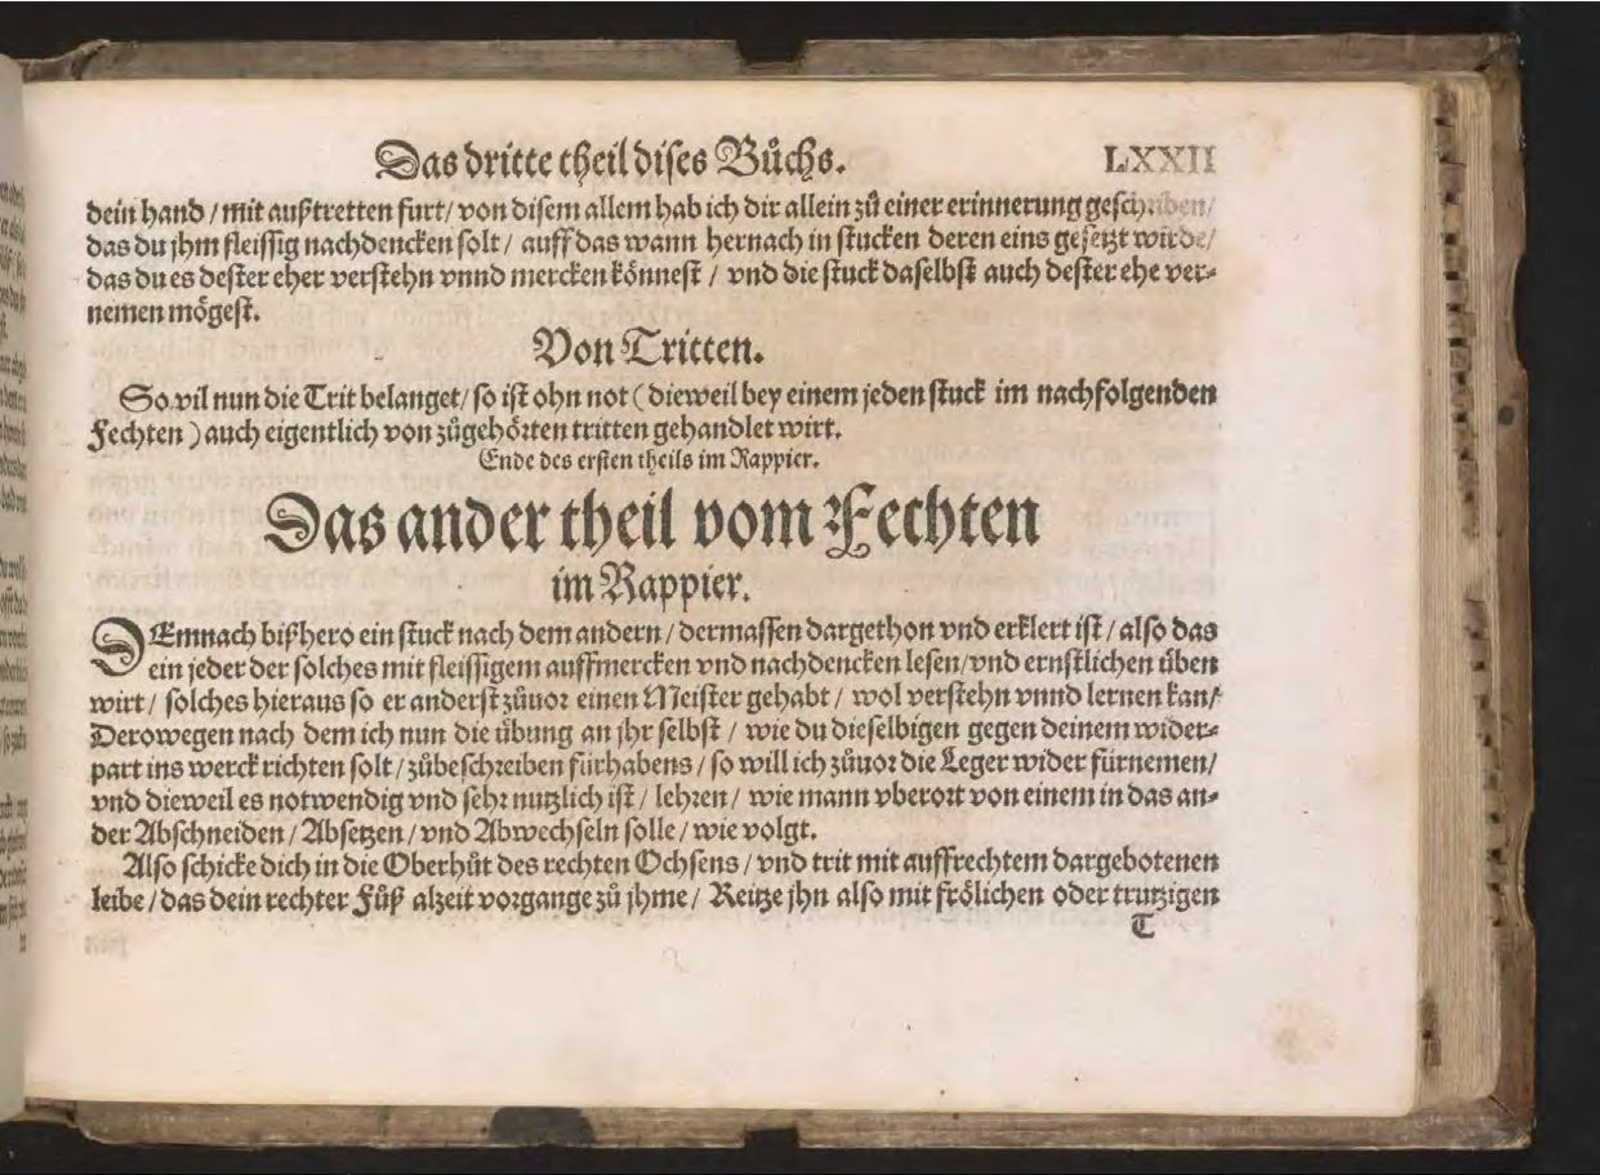 Das dritte theil dises Bůchs. LXXII
dein hand / mit außtretten furt / von disem allem hab ich dir allein zů einer erinnerung geschriben /
das du jhm fleissig nachdencken solt / auff das wann hernach in stucken deren eins gesetzt wirde /
das du es dester eher verstehn vnnd mercken könnest / vnd die stuck daselbst auch dester ehe ver-
nemen mögest.
Von Tritten.
So vil nun die Trit belanget / so ist ohn not ( dieweil bey einem jeden stuck im nachfolgenden
Fechten ) auch eigentlich von zůgehörten tritten gehandlet wirt.
Ende des ersten theils im Rappier.
Das ander theil vom Fechten
im Rappier.
DEmnach bißhero ein stuck nach dem andern / dermassen dargethon vnd erklert ist / also das
ein jeder der solches mit fleissigem auffmercken vnd nachdencken lesen / vnd ernstlichen üben
wirt / solches hieraus so er anderst zůuor einen Meister gehabt / wol verstehn vnnd lernen kan /
Derowegen nach dem ich nun die übung an jhr selbst / wie du dieselbigen gegen deinem wider-
part ins werck richten solt / zůbeschreiben fürhabens / so will ich zůuor die Leger wider fürnemen /
vnd dieweil es notwendig vnd sehr nutzlich ist / lehren / wie mann vberort von einem in das an-
der Abschneiden / Absetzen / vnd Abwechseln solle / wie volgt.
Also schicke dich in die Oberhůt des rechten Ochsens / vnd trit mit auffrechtem dargebotenen
leibe / das dein rechter Fůß alzeit vorgange zů jhme / Reitze jhn also mit frölichen oder trutzigen
T